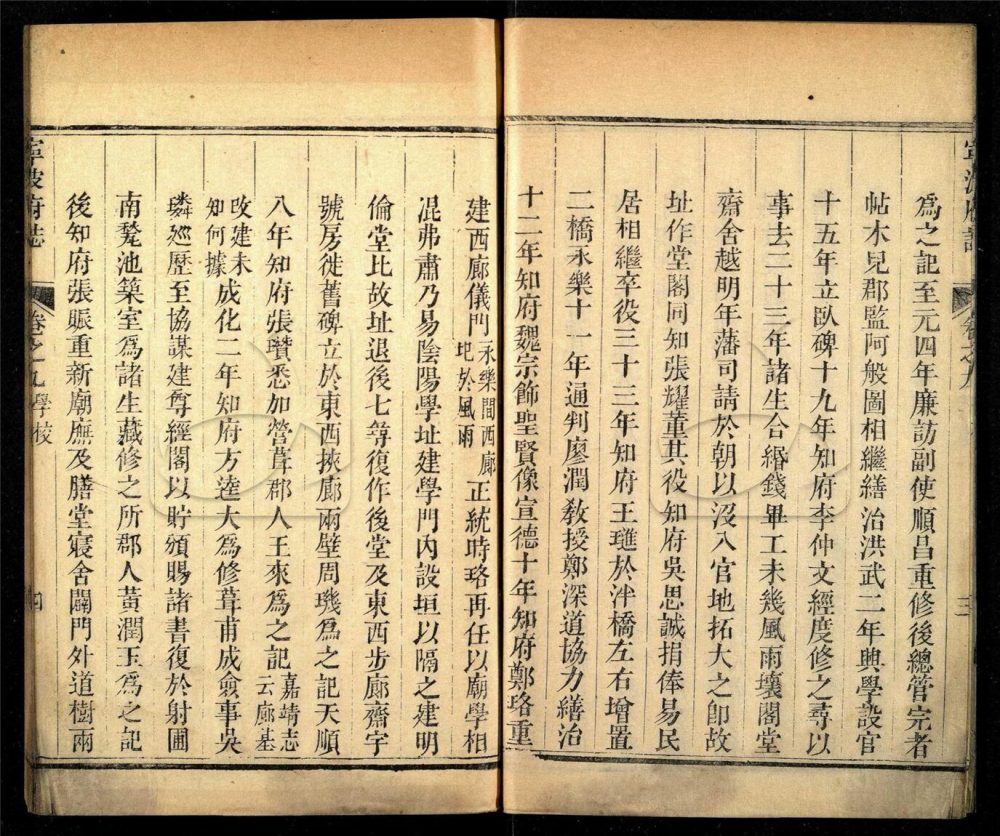 為之記至元四年廉訪副使順昌重修後總管完者
帖木兒郡監阿般圖相繼繕治洪武二年興學設官
十五年立臥碑十九年知府李仲文經度修之尋以
事去二十三年諸生合緡錢畢工未幾風雨壞閣堂
齋舍越明年藩司請於朝以沒入官地拓大之卽故
址作堂閣同知張耀董其役知府吳思誠捐俸易民
居相繼卒役三十三年知府王璡於泮橋左右增置
二橋永樂十一年通判廖潤教授鄭深道協力繕治
十二年知府魏宗飾聖賢像宣德十年知府鄭珞重
建西廊儀門永樂間西廊圮於風雨正統時珞再任以廟學相
混弗肅乃易陰陽學址建學門內設垣以隔之建明
倫堂比故址退後七尋復作後堂及東西步廊齋宇
號房徙舊碑立於東西挾廊兩壁周璣為之記天順
八年知府張瓚悉加營葺郡人王來為之記嘉靖志云廊基
改建未知何據成化二年知府方逵大為修葺甫成僉事吳
璘廵歷至協謀建尊經閣以貯頒賜諸書復於射圃
南甃池築室為諸生藏修之所郡人黃潤玉為之記
後知府張賑重新廟廡及膳堂寢舍闢門外道樹兩
寧波府志
卷之九學校